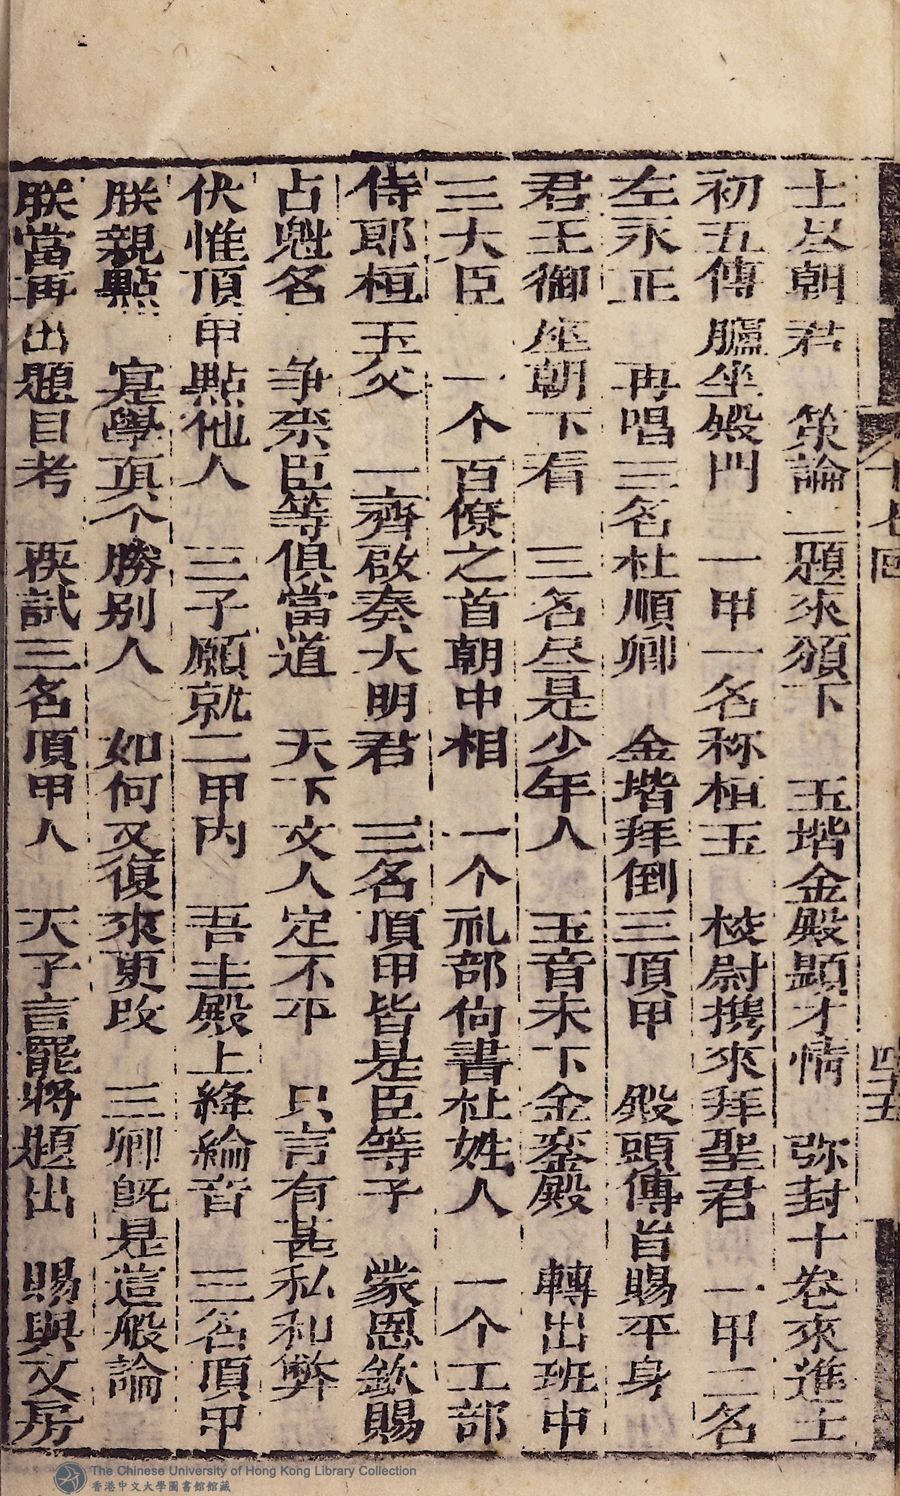 士𠔃朝君　策論二題來頒下　玉堦金殿顕才情　弥封十卷來進王
初五傳臚坐殿門　一甲一名称桓玉　校尉携來拜聖君　一甲二名
左永正　再唱三名杜順卿　金堦拜倒三頂甲　殿頭傳旨賜平身
君王御座朝下看　三名尽是少年人　玉音未下金鑾殿　轉出班中
三大臣　一个百僚之首朝中相　一个礼部尚書杜姓人　一个工部
侍郎桓玉父　一齊啟奏大明君　三名頂甲皆是臣等子　蒙恩欽賜
占魁名　争柰臣等俱當道　天下文人定不平　只言有甚私和弊
伏惟頂甲點他人　三子願就二甲内　吾主殿上絳綸音　三名頂甲
朕親點　寔學真个勝别人　如何又復來更改　三卿既是這般論
朕當再出題目考　覆試三名頂甲人　天子言罷將題出　賜與文房
十七囬
四十五
The Chinese University of Hong Kong Library Collection
香港中文大學圖書館館藏